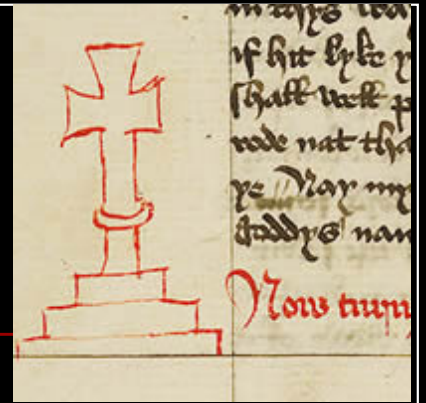 in thys
if hit lyke y
shall well p
rode nat tha
ye // Nay my
Goddys nam
Now turn